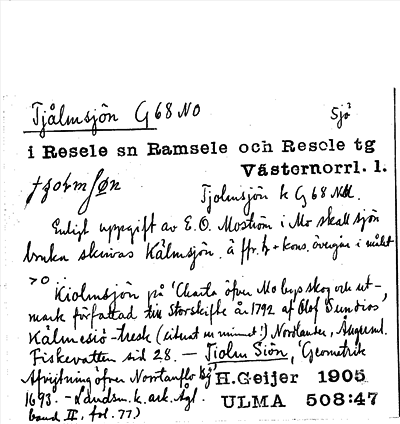 Tjålmsjön G 68 NO
Sjö
i Resele sn Ramsele och Resele tg
Västernorrl. l.
Tjolmsjön k G 68 NO.
Enligt uppgift av E. O. Moström i Mo skall sjön
bruka skrivas Kälmsjön. å ffr. + kons. övergår i målet
> o.
Kiolmsjön på 'Charta öfver Mo bys skog och ut-
mark författad till Storskifte år 1792 af Olof Sundios'
Kälmesiö-tresk (citerat ur minnet!) Nordlander, Ångerml.
Fiskevatten sid 28. — Tiolm Siön, 'Geometrisk
Afrijtning öfver
H. Geijer 1905
1693. - Landsm. k. ark. Ågl.
ULMA 508:47
band II, fol. 77.)